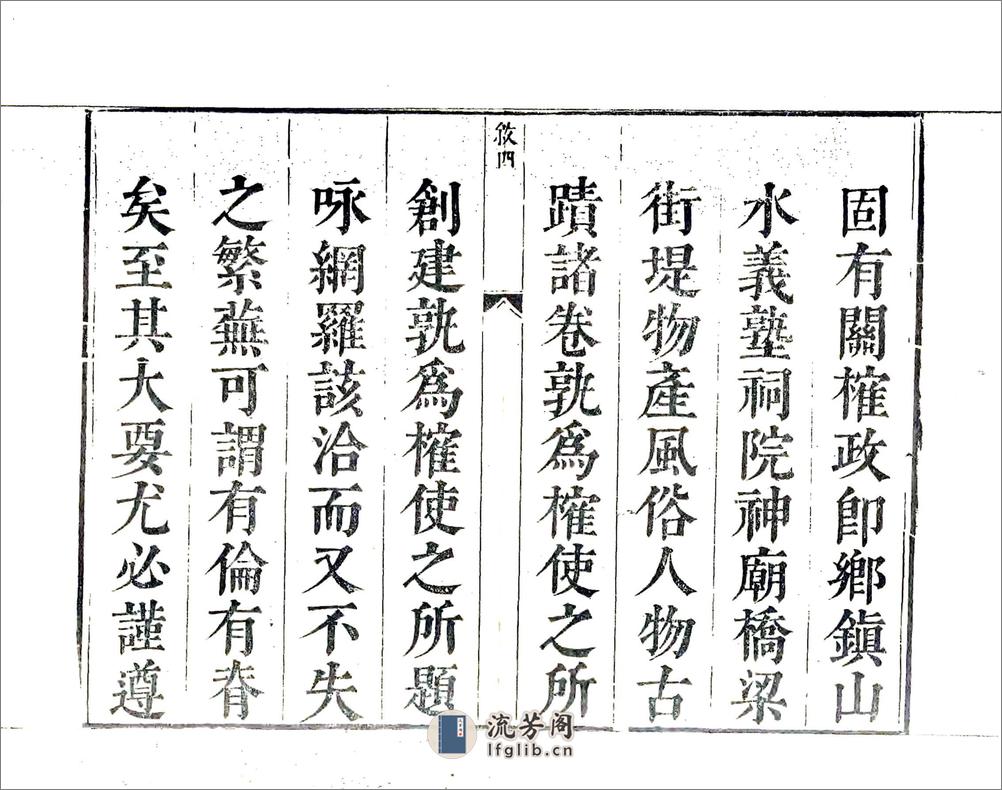 固有關榷政卽鄉鎭山
水義塾祠院神廟橋梁
街堤物產風俗人物古
蹟諸卷孰爲榷使之所
敘四
創建孰爲榷使之所題
咏網羅該洽而又不失
之繁蕪可謂有倫有脊
矣至其大要尤必謹遵
流芳阁
lfglib.cn